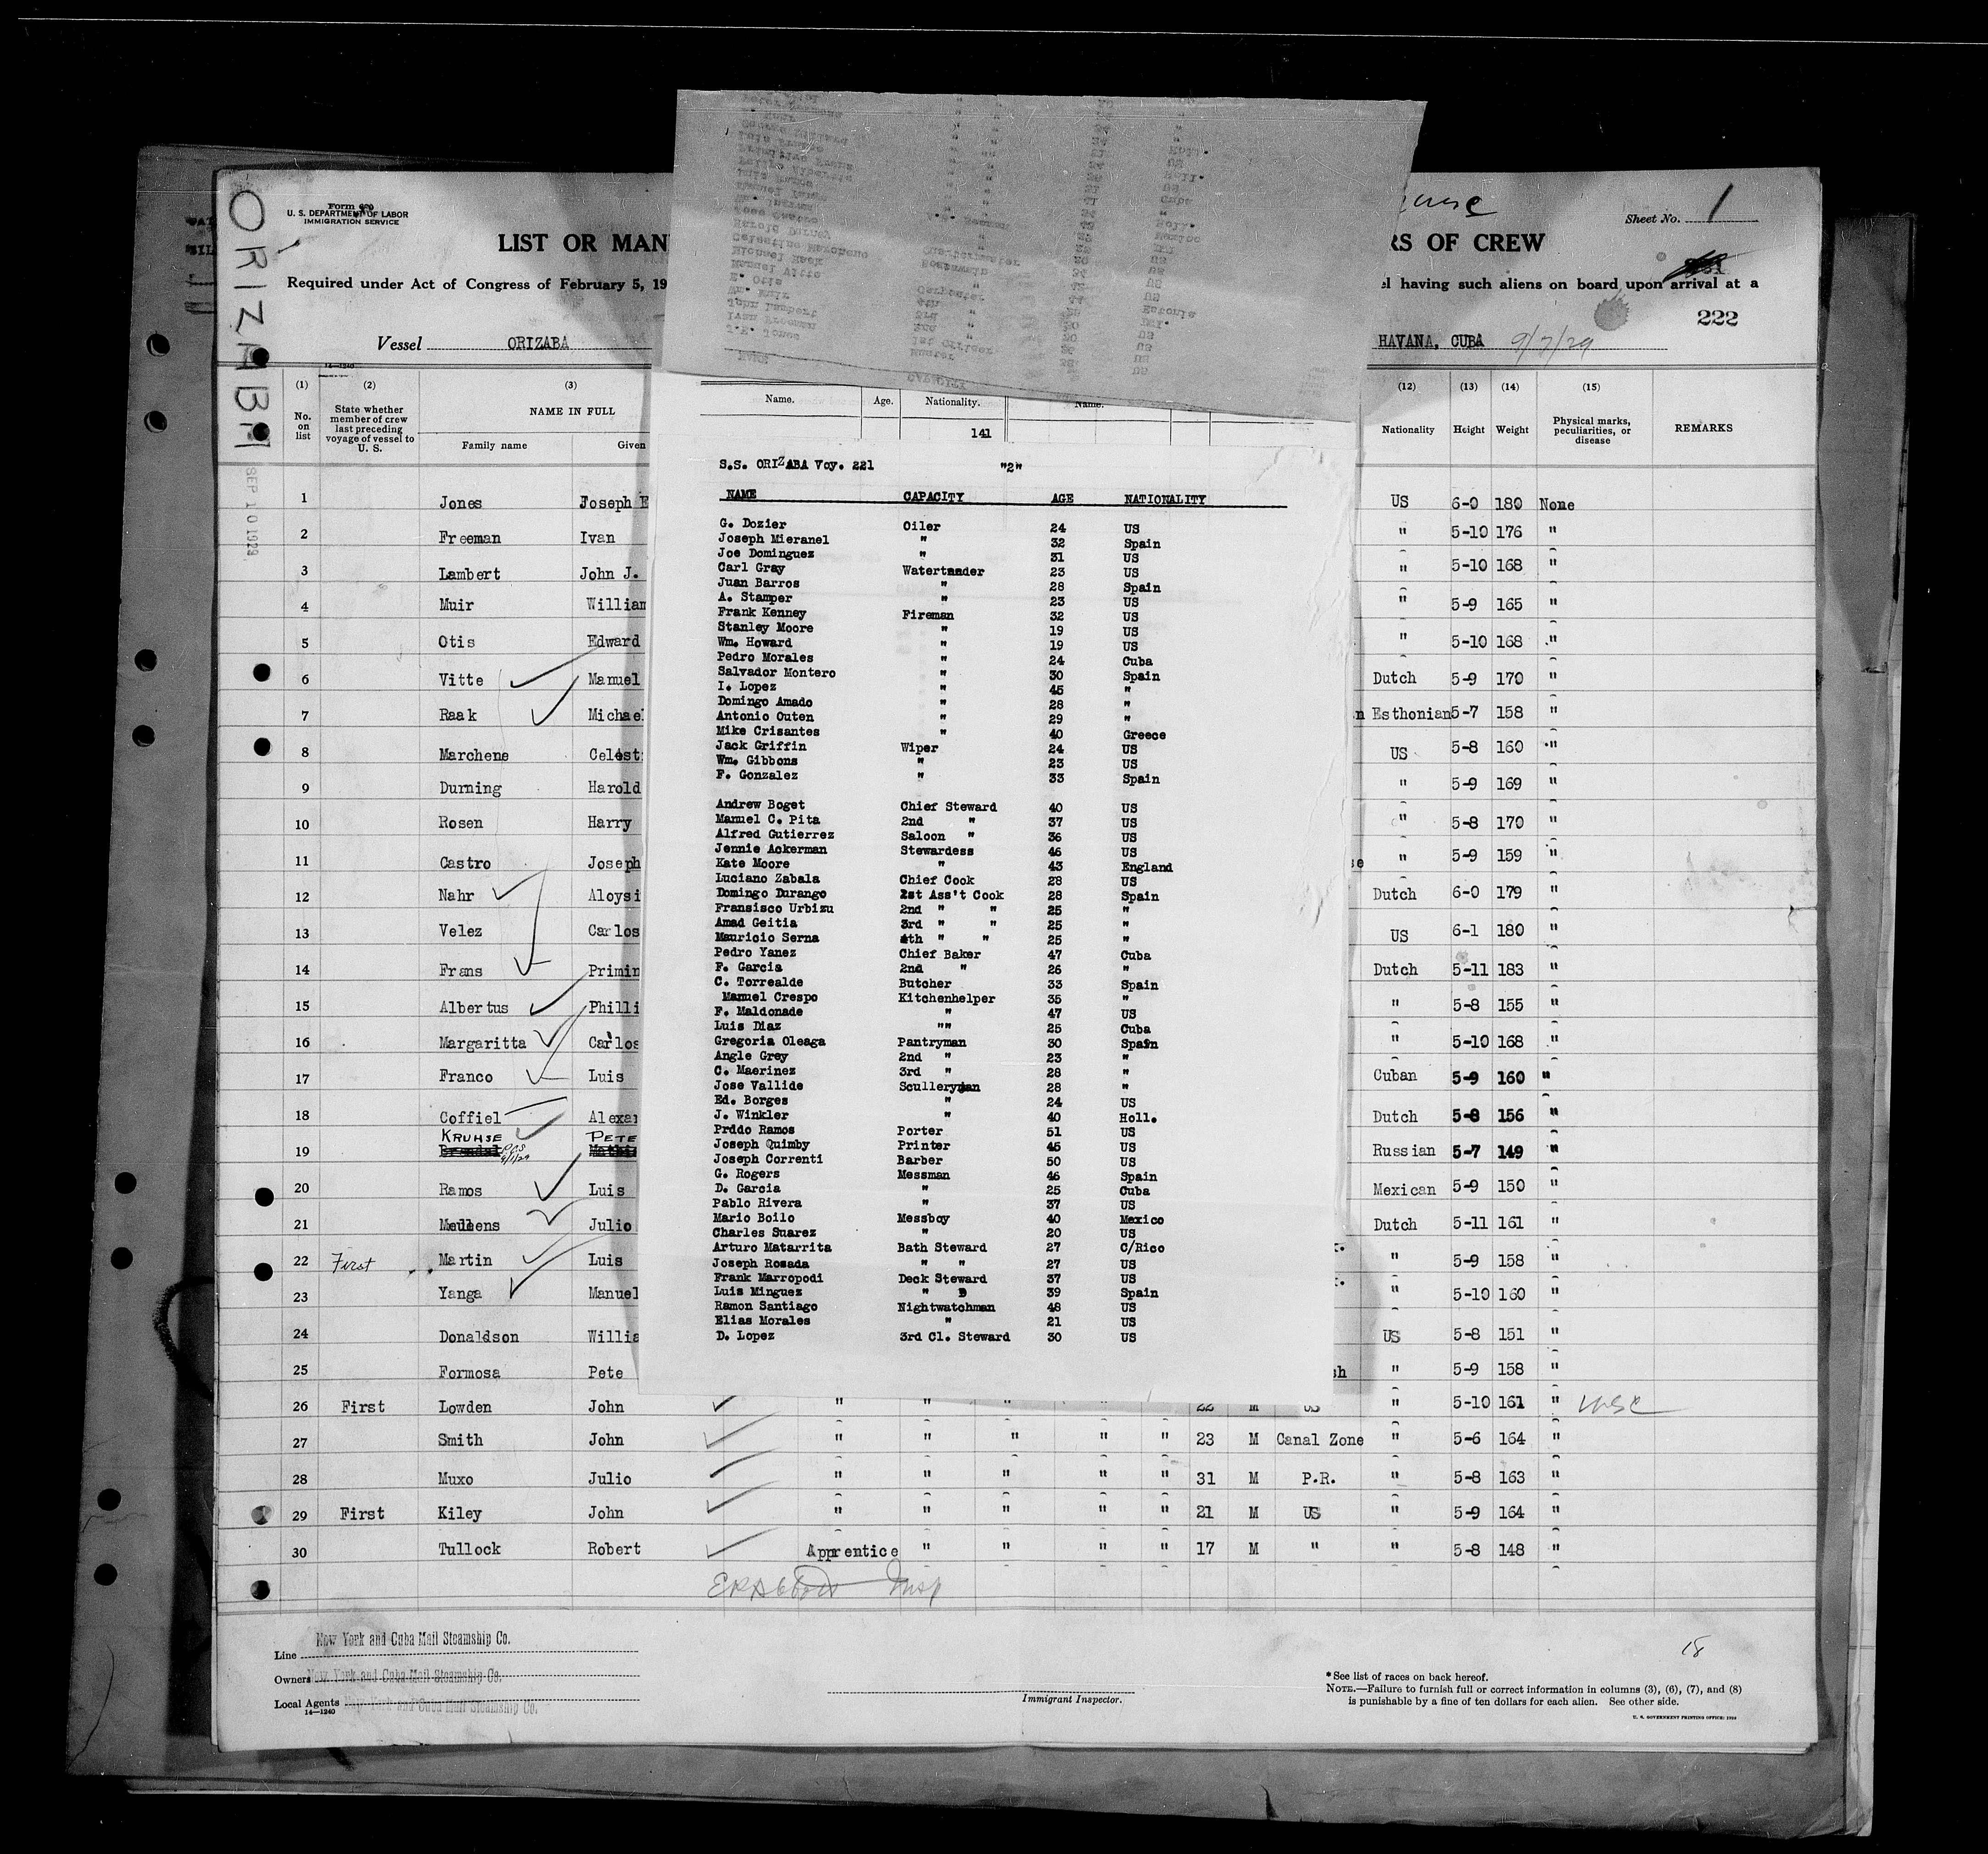 ORIZABA
SEP 10 1929
Form 680
U. S. DEPARTMENT OF LABOR
IMMIGRATION SERVICE
Sheet No. 1
LIST OR MAN
RS OF CREW
Required under Act of Congress of February 5, 19
el having such aliens on board upon arrival at a
222
Vessel ORIZABA
HAVANA, CUBA 9/7/29
(1) (2) (3) (12) (13) (14) (15)
No. on list State whether member of crew last preceding voyage of vessel to U. S. NAME IN FULL Family name Given
Nationality Height Weight Physical marks, peculiarities, or disease REMARKS
Name. Age. Nationality. Name.
141
S.S. ORIZABA Voy. 221 "2"
NAME CAPACITY AGE NATIONALITY
G. Dozier Oiler 24 US
Joseph Mieranel " 32 Spain
Joe Dominguez " 31 US
Carl Gray Watertender 23 US
Juan Barros " 28 Spain
A. Stamper " 23 US
Frank Kenney Fireman 32 US
Stanley Moore " 19 US
Wm. Howard " 19 US
Pedro Morales " 24 Cuba
Salvador Montero " 30 Spain
I. Lopez " 45 "
Domingo Amado " 28 "
Antonio Outen " 29 "
Mike Crisantes " 40 Greece
Jack Griffin Wiper 24 US
Wm. Gibbons " 23 US
F. Gonzalez " 33 Spain
Andrew Boget Chief Steward 40 US
Manuel C. Pita 2nd " 37 US
Alfred Gutierrez Saloon " 36 US
Jennie Ackerman Stewardess 46 US
Kate Moore " 43 England
Luciano Zabala Chief Cook 28 US
Domingo Durango 1st Ass't Cook 28 Spain
Fransisco Urbizu 2nd " " 25 "
Amad Geitia 3rd " " 25 "
Mauricio Serna 4th " " 25 "
Pedro Yanez Chief Baker 47 Cuba
F. Garcia 2nd " 26 "
C. Torrealde Butcher 33 Spain
Manuel Crespo Kitchenhelper 35 "
F. Maldonade " 47 US
Luis Diaz "" 25 Cuba
Gregoria Oleaga Pantryman 30 Spain
Angle Grey 2nd " 23 "
C. Maerinez 3rd " 28 "
Jose Vallide Sculleryman 28 "
Ed. Borges " 24 US
J. Winkler " 40 Holl.
Prddo Ramos Porter 51 US
Joseph Quimby Printer 45 US
Joseph Correnti Barber 50 US
G. Rogers Messman 46 Spain
D. Garcia " 25 Cuba
Pablo Rivera " 37 US
Mario Boilo Messboy 40 Mexico
Charles Suarez " 20 US
Arturo Matarrita Bath Steward 27 C/Rico
Joseph Rosada " " 27 US
Frank Marropodi Deck Steward 37 US
Luis Minguez " " 39 Spain
Ramon Santiago Nightwatchman 48 US
Elias Morales " 21 US
D. Lopez 3rd Cl. Steward 30 US
1 Jones Joseph E US 6-0 180 None
2 Freeman Ivan " 5-10 176 "
3 Lambert John J. " 5-10 168 "
4 Muir William " 5-9 165 "
5 Otis Edward " 5-10 168 "
6 Vitte Manuel Dutch 5-9 170 "
7 Raak Michael n Esthonian 5-7 158 "
8 Marchene Celest US 5-8 160 "
9 Durning Harold " 5-9 169 "
10 Rosen Harry " 5-8 170 "
11 Castro Joseph se " 5-9 159 "
12 Nahr Aloysi Dutch 6-0 179 "
13 Velez Carlos US 6-1 180 "
14 Frans Primin Dutch 5-11 183 "
15 Albertus Philli " 5-8 155 "
16 Margaritta Carlos " 5-10 168 "
17 Franco Luis Cuban 5-9 160 "
18 Coffiel Alexan Dutch 5-8 156 "
19 KRUHSE PETE Russian 5-7 149 "
20 Ramos Luis Mexican 5-9 150 "
21 Meulens Julio Dutch 5-11 161 "
22 First Martin Luis " 5-9 158 "
23 Yanga Manuel " 5-10 160 "
24 Donaldson Willia US 5-8 151 "
25 Formosa Pete sh " 5-9 158 "
26 First Lowden John " " " " " 22 M US " 5-10 161 " USC
27 Smith John " " " " " 23 M Canal Zone " 5-6 164 "
28 Muxo Julio " " " " " 31 M P.R. " 5-8 163 "
29 First Kiley John " " " " " 21 M US " 5-9 164 "
30 Tullock Robert Apprentice " " " " 17 M " " 5-8 148 "
Insp
Line New York and Cuba Mail Steamship Co.
Owners New York and Cuba Mail Steamship Co.
Local Agents New York and Cuba Mail Steamship Co.
14—1240
Immigrant Inspector.
18
* See list of races on back hereof.
NOTE.—Failure to furnish full or correct information in columns (3), (6), (7), and (8)
is punishable by a fine of ten dollars for each alien. See other side.
U. S. GOVERNMENT PRINTING OFFICE: 1928